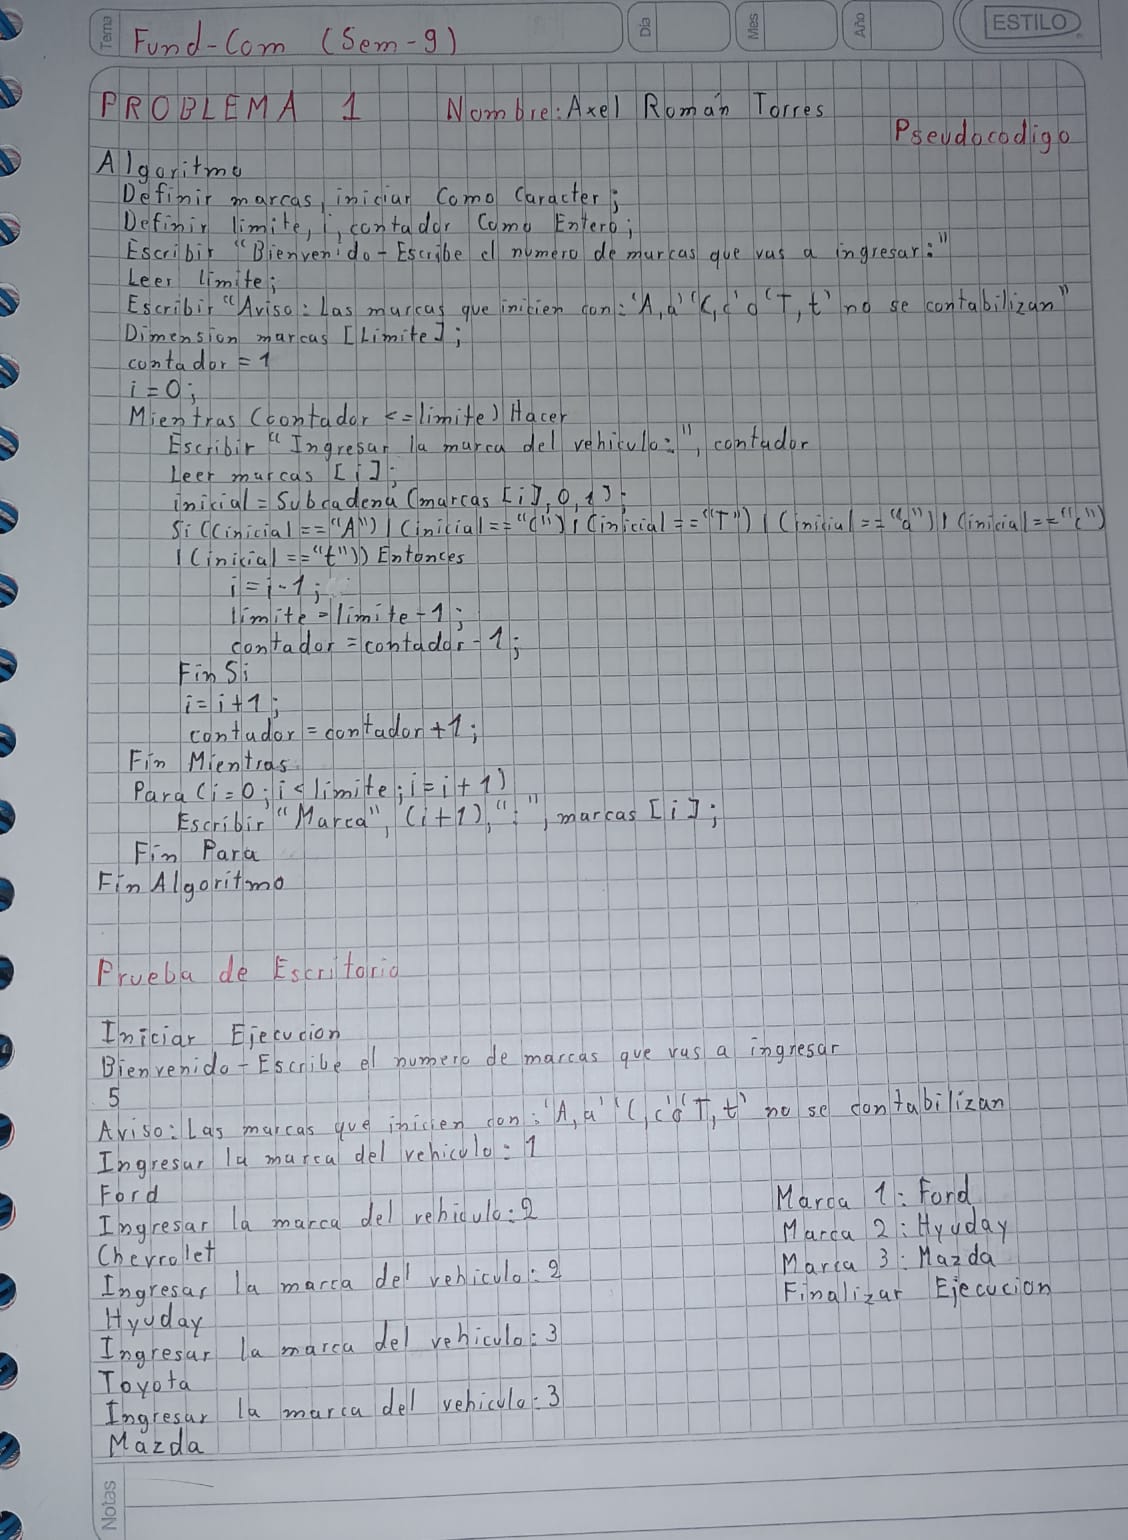 Tema
Fund-Com (Sem-9)
Día
Mes
Año
ESTILO
PROBLEMA 1 Nombre: Axel Román Torres
Pseudocodigo
Algoritmo
Definir marcas, iniciar Como Caracter;
Definir limite, i, contador Como Entero;
Escribir "Bienvenido - Escribe el numero de marcas que vas a ingresar:"
Leer limite;
Escribir "Aviso: Las marcas que inicien con: 'A, a' 'C, c' o 'T, t' no se contabilizan"
Dimension marcas [Limite];
contador = 1
i = 0;
Mientras (contador <= limite) Hacer
Escribir "Ingresar la marca del vehiculo:", contador
Leer marcas [i];
inicial = Subcadena (marcas [i], 0, 1);
Si ((inicial == "A") | (inicial == "C") | (inicial == "T") | (inicial == "a") | (inicial == "c")
| (inicial == "t")) Entonces
i = i - 1;
limite = limite - 1;
contador = contador - 1;
Fin Si
i = i + 1;
contador = contador + 1;
Fin Mientras
Para (i = 0; i < limite; i = i + 1)
Escribir "Marca", (i + 1), ":", marcas [i];
Fin Para
Fin Algoritmo
Prueba de Escritorio
Iniciar Ejecucion
Bienvenido - Escribe el numero de marcas que vas a ingresar
5
Aviso: Las marcas que inicien con: 'A, a' 'C, c' o 'T, t' no se contabilizan
Ingresar la marca del vehiculo: 1
Ford
Ingresar la marca del vehiculo: 2
Chevrolet
Ingresar la marca del vehiculo: 2
Hyuday
Ingresar la marca del vehiculo: 3
Toyota
Ingresar la marca del vehiculo: 3
Mazda
Marca 1: Ford
Marca 2: Hyuday
Marca 3: Mazda
Finalizar Ejecucion
Notas